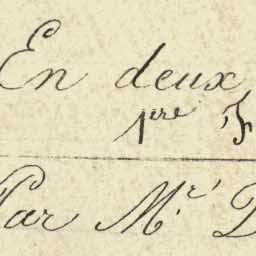 En deux
1ère
Par Mr.